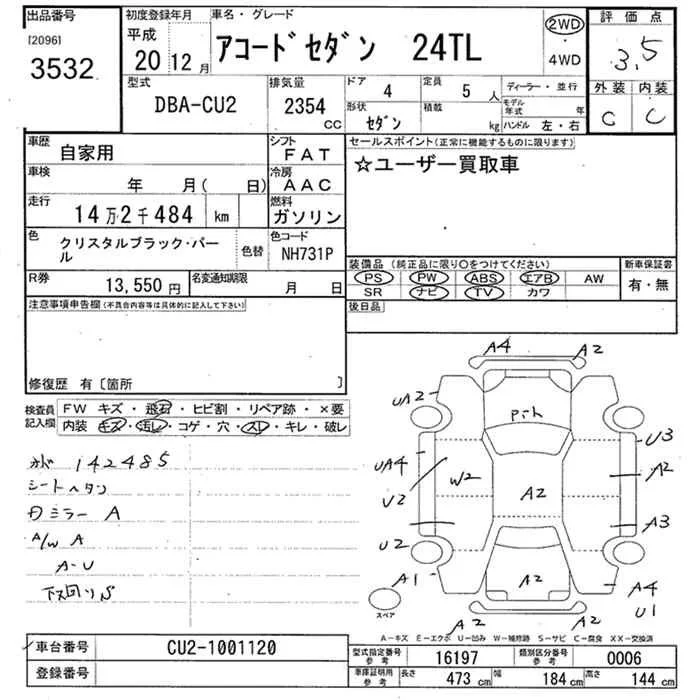 出品番号
[2096]
3532
初度登録年月
平成
20 12月
車名・グレード
アコードセダン 24TL
2WD
・
4WD
評価点
3.5
外装 内装
C C
型式
DBA-CU2
排気量
2354
CC
ドア
4
定員
5人
形状
セダン
積載
kg
ディーラー・並行
モデル年式 年
ハンドル 左・右
車歴
自家用
シフト
FAT
車検
年 月( 日)
冷房
AAC
走行
14万2千484 km
燃料
ガソリン
色
クリスタルブラック・パール
色替
色コード
NH731P
R券
13,550円
名変通知期限
月 日
セールスポイント(正常に機能するものに限ります)
☆ユーザー買取車
装備品(純正品に限り○をつけてください)
新車保証書
PS PW ABS エアB AW
SR ナビ TV カワ
有・無
後日品
注意事項申告欄(不具合内容等は具体的に記入して下さい)
修復歴 有〔箇所 〕
検査員記入欄
FW キズ・飛石・ヒビ割・リペア跡・×要
内装 キズ・汚レ・コゲ・穴・スレ・キレ・破レ
142485
シートヘタリ
ミラー A
A/W A
A-U
A4
A2
UA2
U3
UA4
A2
U2
W2
A2
A3
U2
A1
A2
A4
U1
A2
A2
スペア
A―キズ E―エクボ U―凹み W―補修跡 S―サビ C―腐食 XX―交換済
車台番号
CU2-1001120
登録番号
型式指定番号
参考
16197
類別区分番号
参考
0006
車庫証明用
参考
長さ
473 cm
幅
184 cm
高さ
144 cm